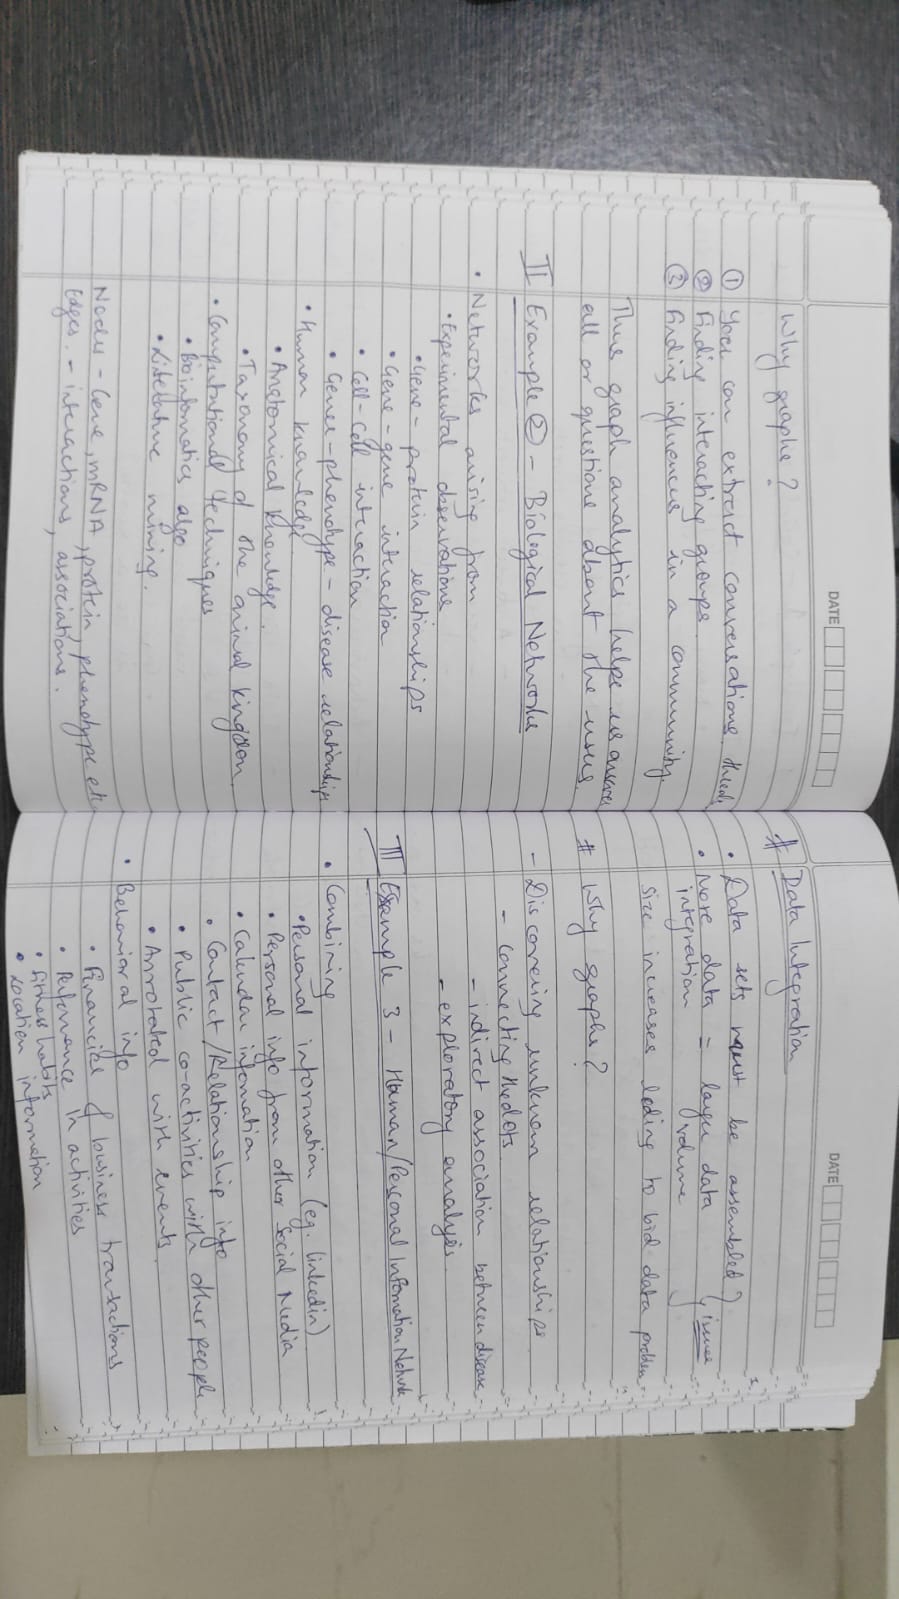 DATE
Why graphs?
① You can extract conversations threads
② Finding interacting groups.
③ Finding influencers in a community.
Thus graph analytics helps us answer
all or questions about the users.
II Example ② - Biological Networks
• Networks arising from
• Experimental observations
• Gene - protein relationships
• Gene - gene interaction
• Cell-Cell interaction
• Gene - phenotype - disease relationships
• Human knowledge
• Anatomical knowledge.
• Taxonomy of the animal kingdom.
• Computational techniques
• Bioinfomatics algo
• Literature mining.
Nodes - Gene, mRNA, protein, phenotype etc
Edges. - interactions, associations.
DATE
# Data Integration
• Data sets must be assembled } issues
• More data = larger data
integration volume
Size increases leding to bid data problem
# Why graphs?
- Discovering unknown relationships
- connecting the dots
- indirect association between disease
- exploratory analysis.
III Example 3 - Human/Personal Infomation Network
• Combining
• Personal information (eg. linkedin)
• Personal info from other Social Media
• Calendar infomation
• Contact/Relationship info
• Public co-activities with other people
• Annotated with events
• Behavioral info
• Financial & business transactions
• Perfomance in activities
• Fitness habits
• Location information